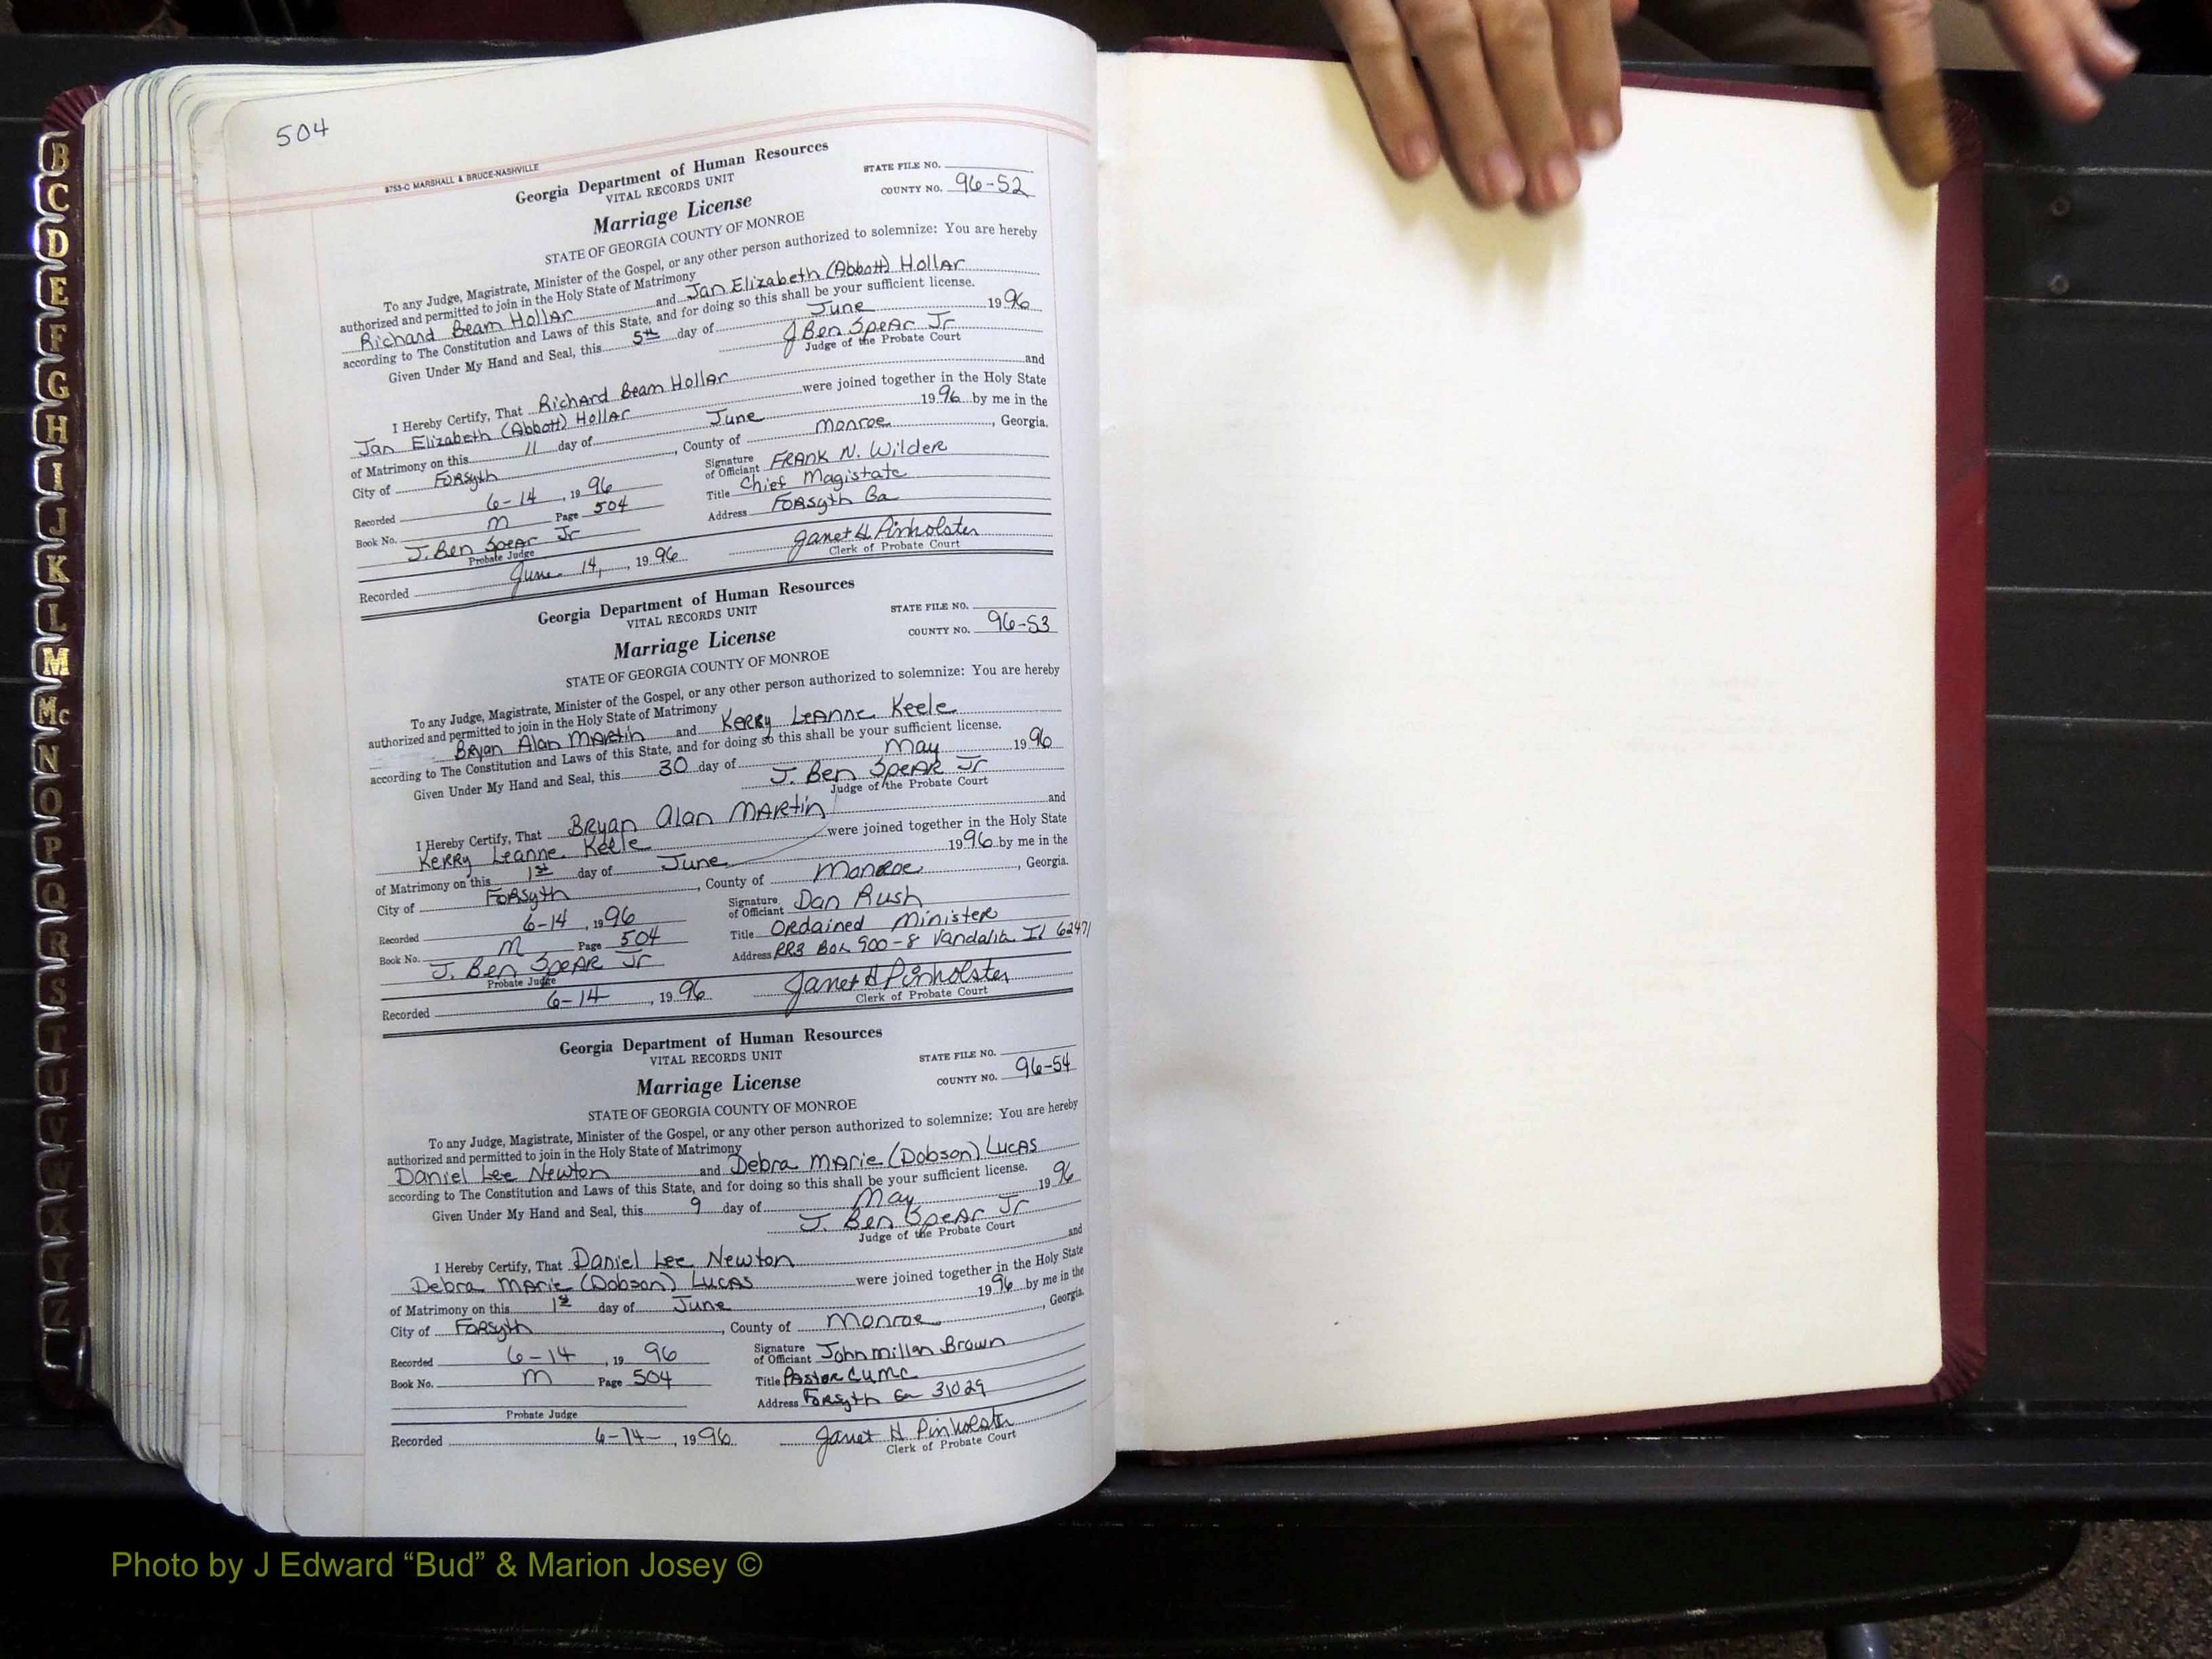 504
8753-C MARSHALL & BRUCE-NASHVILLE
Georgia Department of Human Resources
VITAL RECORDS UNIT
STATE FILE NO.
COUNTY NO. 96-52
Marriage License
STATE OF GEORGIA COUNTY OF MONROE
To any Judge, Magistrate, Minister of the Gospel, or any other person authorized to solemnize: You are hereby
authorized and permitted to join in the Holy State of Matrimony
Richard Beam Hollar and Jan Elizabeth (Abbott) Hollar
according to The Constitution and Laws of this State, and for doing so this shall be your sufficient license.
Given Under My Hand and Seal, this 5th day of June 1996
J Ben Spear Jr
Judge of the Probate Court
I Hereby Certify, That Richard Beam Hollar and
Jan Elizabeth (Abbott) Hollar were joined together in the Holy State
of Matrimony on this 11 day of June 1996 by me in the
City of Forsyth, County of Monroe, Georgia.
Recorded 6-14, 1996
Signature of Officiant Frank N. Wilder
Book No. M Page 504
Title Chief Magistate
J. Ben Spear Jr
Address Forsyth Ga
Probate Judge
Recorded June 14, 1996
Janet H. Pinholster
Clerk of Probate Court
Georgia Department of Human Resources
VITAL RECORDS UNIT
STATE FILE NO.
COUNTY NO. 96-53
Marriage License
STATE OF GEORGIA COUNTY OF MONROE
To any Judge, Magistrate, Minister of the Gospel, or any other person authorized to solemnize: You are hereby
authorized and permitted to join in the Holy State of Matrimony
Bryan Alan Martin and Kerry Leanne Keele
according to The Constitution and Laws of this State, and for doing so this shall be your sufficient license.
Given Under My Hand and Seal, this 30 day of May 1996
J. Ben Spear Jr
Judge of the Probate Court
I Hereby Certify, That Bryan Alan Martin and
Kerry Leanne Keele were joined together in the Holy State
of Matrimony on this 1st day of June 1996 by me in the
City of Forsyth, County of Monroe, Georgia.
Recorded 6-14, 1996
Signature of Officiant Dan Rush
Book No. M Page 504
Title Ordained Minister
J. Ben Spear Jr
Address RR3 Box 900-8 Vandalia Il 62471
Probate Judge
Recorded 6-14, 1996
Janet H Pinholster
Clerk of Probate Court
Georgia Department of Human Resources
VITAL RECORDS UNIT
STATE FILE NO.
COUNTY NO. 96-54
Marriage License
STATE OF GEORGIA COUNTY OF MONROE
To any Judge, Magistrate, Minister of the Gospel, or any other person authorized to solemnize: You are hereby
authorized and permitted to join in the Holy State of Matrimony
Daniel Lee Newton and Debra Marie (Dobson) Lucas
according to The Constitution and Laws of this State, and for doing so this shall be your sufficient license.
Given Under My Hand and Seal, this 9 day of May 1996
J. Ben Spear Jr
Judge of the Probate Court
I Hereby Certify, That Daniel Lee Newton and
Debra Marie (Dobson) Lucas were joined together in the Holy State
of Matrimony on this 1st day of June 1996 by me in the
City of Forsyth, County of Monroe, Georgia.
Recorded 6-14, 1996
Signature of Officiant John Millan Brown
Book No. M Page 504
Title Pastor CUMC
Address Forsyth Ga 31029
Probate Judge
Recorded 6-14-, 1996
Janet H Pinholster
Clerk of Probate Court
B
C
D
E
F
G
H
I
J
K
L
M
Mc
N
O
P
Q
R
S
T
U
V
W
X
Y
Z
Photo by J Edward “Bud” & Marion Josey ©